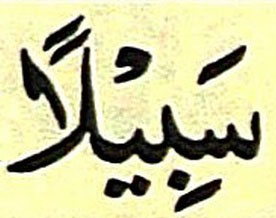 سَبِيْلًا